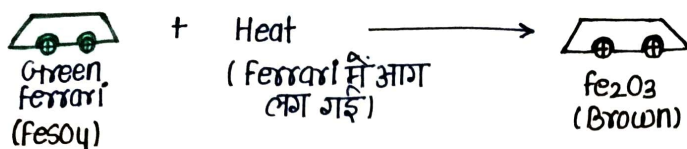 Green
Ferrari
(FeSO4)
+
Heat
(Ferrari में आग
लग गई)
Fe2O3
(Brown)